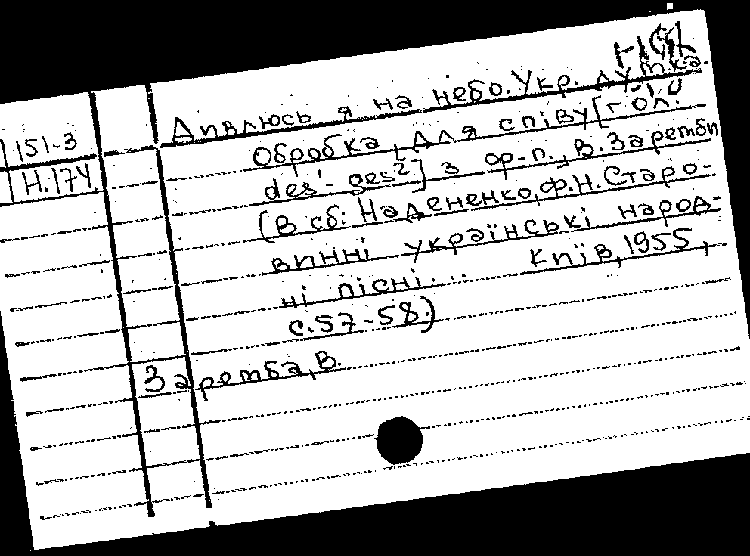 НСЧ
Дивлюсь я на небо. Укр. думка.
151-3
Обробка, для співу [гол.
Н.174.
des¹- ges²] з ф-п., В. Заремби
(В сб: Надененко, Ф.Н. Старо-
винні українські народ-
ні пісні... Київ, 1955,
с. 57-58.)
Заремба, В.